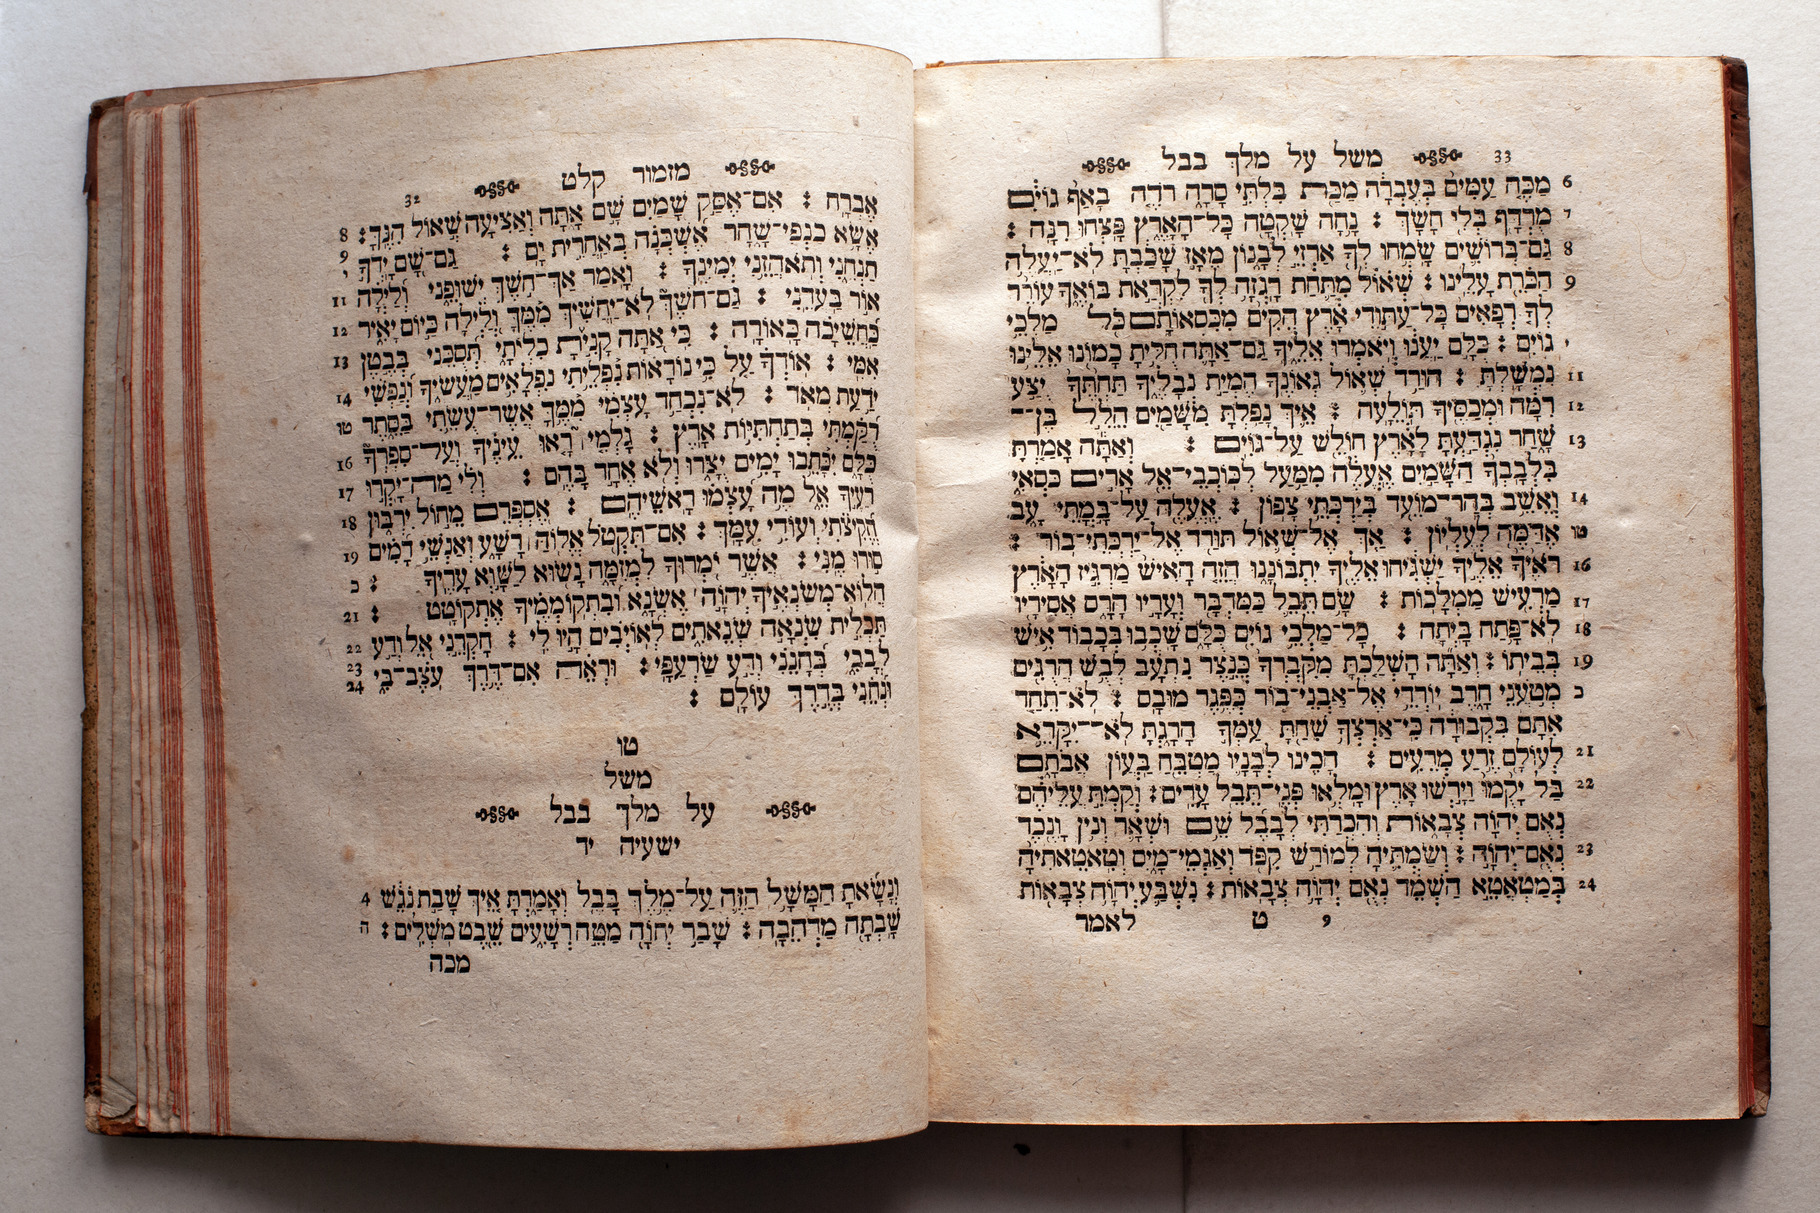 מזמור קלט 32
אֶבְרָח׃ אִם־אֶסַּק שָׁמַיִם שָׁם אָתָּה וְאַצִּיעָה שְּׁאוֹל הִנֶּךָּ׃ 8
אֶשָּׂא כַנְפֵי־שָׁחַר אֶשְׁכְּנָה בְּאַחֲרִית יָם׃ גַּם־שָׁם יָדְךָ 9 י
תַנְחֵנִי וְתֹאחֲזֵנִי יְמִינֶךָ׃ וָאֹמַר אַךְ־חֹשֶׁךְ יְשׁוּפֵנִי וְלַיְלָה 11
אוֹר בַּעֲדֵנִי׃ גַּם־חֹשֶׁךְ לֹא־יַחְשִׁיךְ מִמֶּךָ וְלַיְלָה כַּיּוֹם יָאִיר 12
כַּחֲשֵׁיכָה כָּאוֹרָה׃ כִּי אַתָּה קָנִיתָ כִלְיֹתָי תְּסֻכֵּנִי בְּבֶטֶן 13
אִמִּי׃ אוֹדְךָ עַל כִּי נוֹרָאוֹת נִפְלֵיתִי נִפְלָאִים מַעֲשֶׂיךָ וְנַפְשִׁי 14
יֹדַעַת מְאֹד׃ לֹא־נִכְחַד עָצְמִי מִמֶּךָּ אֲשֶׁר־עֻשֵּׂתִי בַסֵּתֶר טו
רֻקַּמְתִּי בְּתַחְתִּיּוֹת אָרֶץ׃ גָּלְמִי רָאוּ עֵינֶיךָ וְעַל־סִפְרְךָ 16
כֻּלָּם יִכָּתֵבוּ יָמִים יֻצָּרוּ וְלֹא אֶחָד בָּהֶם׃ וְלִי מַה־יָּקְרוּ 17
רֵעֶיךָ אֵל מֶה עָצְמוּ רָאשֵׁיהֶם׃ אֶסְפְּרֵם מֵחוֹל יִרְבּוּן 18
הֱקִיצֹתִי וְעוֹדִי עִמָּךְ׃ אִם־תִּקְטֹל אֱלוֹהַּ רָשָׁע וְאַנְשֵׁי דָמִים 19
סוּרוּ מֶנִּי׃ אֲשֶׁר יֹמְרוּךָ לִמְזִמָּה נָשׂוּא לַשָּׁוְא עָרֶיךָ׃ כ
הֲלוֹא־מְשַׂנְאֶיךָ יְהוָה אֶשְׂנָא וּבִתְקוֹמְמֶיךָ אֶתְקוֹטָט׃ 21
תַּכְלִית שִׂנְאָה שְׂנֵאתִים לְאוֹיְבִים הָיוּ לִי׃ חָקְרֵנִי אֵל וְדַע 22
לְבָבִי בְּחָנֵנִי וְדַע שַׂרְעַפָּי׃ וּרְאֵה אִם־דֶּרֶךְ עֹצֶב־בִּי 23 24
וּנְחֵנִי בְּדֶרֶךְ עוֹלָם׃
טו
משל
על מלך בבל
ישעיה יד
וְנָשָׂאתָ הַמָּשָׁל הַזֶּה עַל־מֶלֶךְ בָּבֶל וְאָמָרְתָּ אֵיךְ שָׁבַת נֹגֵשׂ 4
שָׁבְתָה מַדְהֵבָה׃ שָׁבַר יְהוָה מַטֵּה רְשָׁעִים שֵׁבֶט מֹשְׁלִים׃ ה
מכה
33 משל על מלך בבל
6 מַכֶּה עַמִּים בְּעֶבְרָה מַכַּת בִּלְתִּי סָרָה רֹדֶה בָאַף גּוֹיִם
7 מֻרְדָּף בְּלִי חָשָׂךְ׃ נָחָה שָׁקְטָה כָּל־הָאָרֶץ פָּצְחוּ רִנָּה׃
8 גַּם־בְּרוֹשִׁים שָׂמְחוּ לְךָ אַרְזֵי לְבָנוֹן מֵאָז שָׁכַבְתָּ לֹא־יַעֲלֶה
9 הַכֹּרֵת עָלֵינוּ׃ שְׁאוֹל מִתַּחַת רָגְזָה לְךָ לִקְרַאת בּוֹאֶךָ עוֹרֵר
לְךָ רְפָאִים כָּל־עַתּוּדֵי אָרֶץ הֵקִים מִכִּסְאוֹתָם כֹּל מַלְכֵי
י גוֹיִם׃ כֻּלָּם יַעֲנוּ וְיֹאמְרוּ אֵלֶיךָ גַּם־אַתָּה חֻלֵּיתָ כָמוֹנוּ אֵלֵינוּ
11 נִמְשָׁלְתָּ׃ הוּרַד שְׁאוֹל גְּאוֹנֶךָ הֶמְיַת נְבָלֶיךָ תַּחְתֶּיךָ יֻצַּע
12 רִמָּה וּמְכַסֶּיךָ תּוֹלֵעָה׃ אֵיךְ נָפַלְתָּ מִשָּׁמַיִם הֵלֵל בֶּן־
13 שָׁחַר נִגְדַּעְתָּ לָאָרֶץ חוֹלֵשׁ עַל־גּוֹיִם׃ וְאַתָּה אָמַרְתָּ
בִלְבָבְךָ הַשָּׁמַיִם אֶעֱלֶה מִמַּעַל לְכוֹכְבֵי־אֵל אָרִים כִּסְאִי
14 וְאֵשֵׁב בְּהַר־מוֹעֵד בְּיַרְכְּתֵי צָפוֹן׃ אֶעֱלֶה עַל־בָּמֳתֵי עָב
טו אֶדַּמֶּה לְעֶלְיוֹן׃ אַךְ אֶל־שְׁאוֹל תּוּרָד אֶל־יַרְכְּתֵי־בוֹר׃
16 רֹאֶיךָ אֵלֶיךָ יַשְׁגִּיחוּ אֵלֶיךָ יִתְבּוֹנָנוּ הֲזֶה הָאִישׁ מַרְגִּיז הָאָרֶץ
17 מַרְעִישׁ מַמְלָכוֹת׃ שָׂם תֵּבֵל כַּמִּדְבָּר וְעָרָיו הָרָס אֲסִירָיו
18 לֹא־פָתַח בָּיְתָה׃ כָּל־מַלְכֵי גוֹיִם כֻּלָּם שָׁכְבוּ בְכָבוֹד אִישׁ
19 בְּבֵיתוֹ׃ וְאַתָּה הָשְׁלַכְתָּ מִקִּבְרְךָ כְּנֵצֶר נִתְעָב לְבֻשׁ הֲרֻגִים
כ מְטֹעֲנֵי חָרֶב יוֹרְדֵי אֶל־אַבְנֵי־בוֹר כְּפֶגֶר מוּבָס׃ לֹא־תֵחַד
אִתָּם בִּקְבוּרָה כִּי־אַרְצְךָ שִׁחַתָּ עַמְּךָ הָרָגְתָּ לֹא־יִקָּרֵא
21 לְעוֹלָם זֶרַע מְרֵעִים׃ הָכִינוּ לְבָנָיו מַטְבֵּחַ בַּעֲוֹן אֲבֹתָם
22 בַּל יָקֻמוּ וְיָרְשׁוּ אָרֶץ וּמָלְאוּ פְנֵי־תֵבֵל עָרִים׃ וְקַמְתִּי עֲלֵיהֶם
נְאֻם יְהוָה צְבָאוֹת וְהִכְרַתִּי לְבָבֶל שֵׁם וּשְׁאָר וְנִין וָנֶכֶד
23 נְאֻם־יְהוָה׃ וְשַׂמְתִּיהָ לְמוֹרַשׁ קִפֹּד וְאַגְמֵי־מָיִם וְטֵאטֵאתִיהָ
24 בְּמַטְאֲטֵא הַשְׁמֵד נְאֻם יְהוָה צְבָאוֹת׃ נִשְׁבַּע יְהוָה צְבָאוֹת
9 ט לאמר